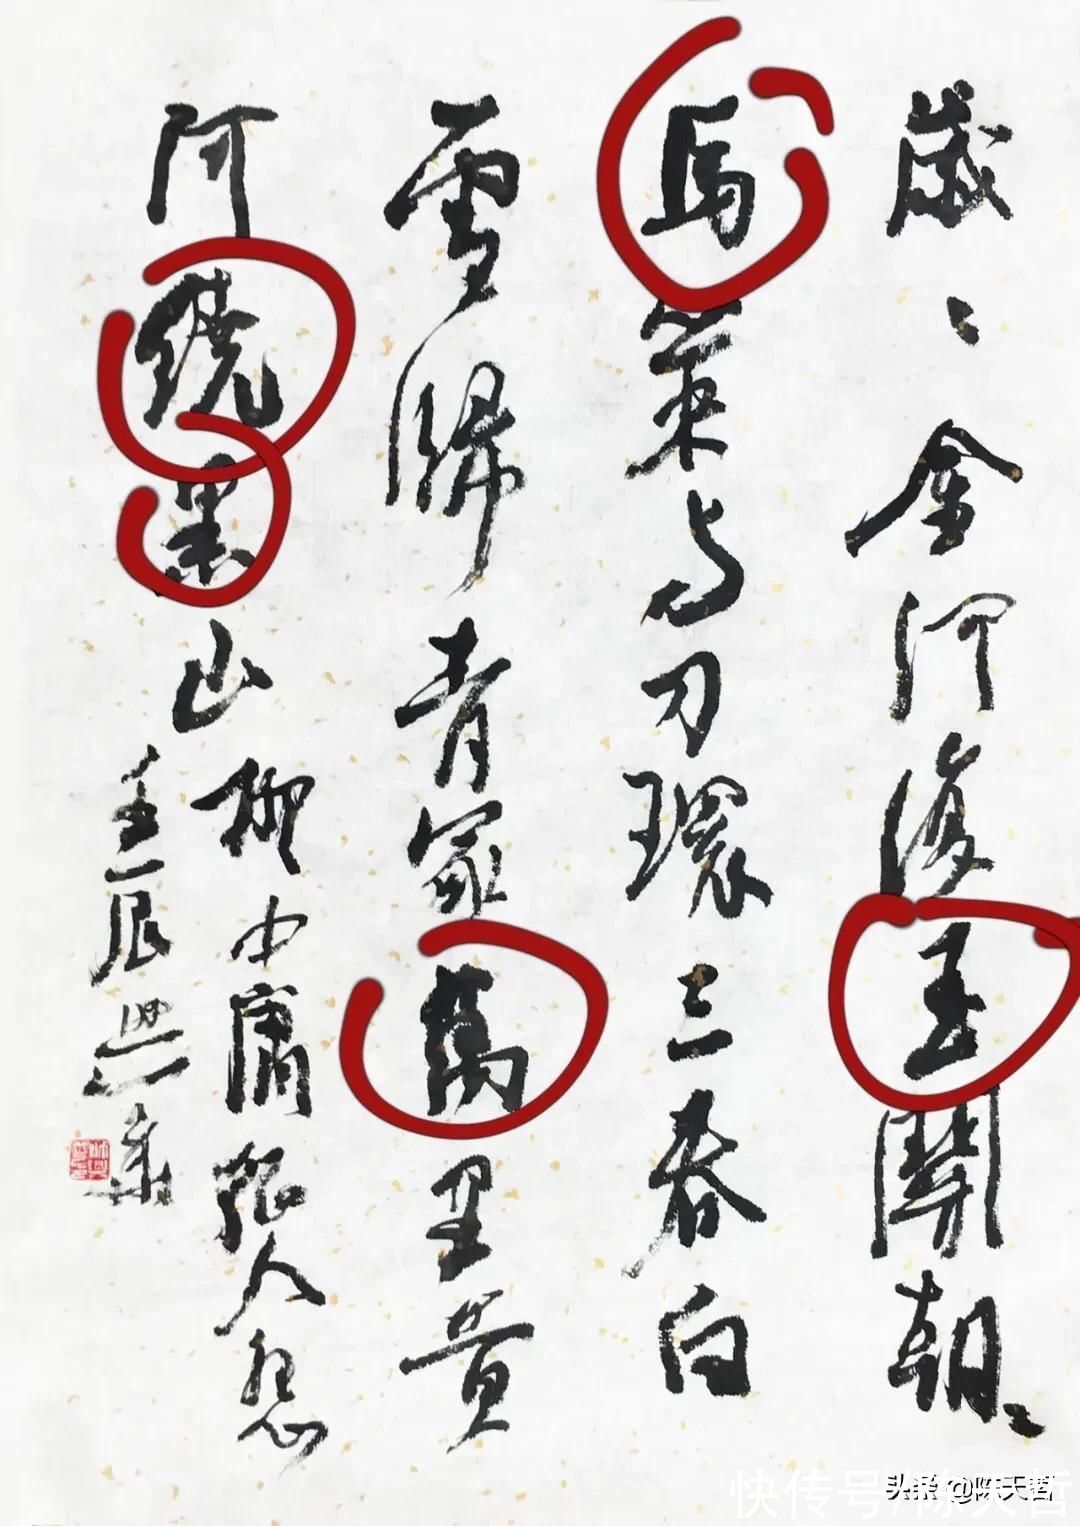 歲〻金河復玉關朝〻
馬策与刀環三春白
雪歸青冢萬里黄
河繞黑山柳中庸征人怨
壬辰
快传号/陈天哲
头条 @陈天哲